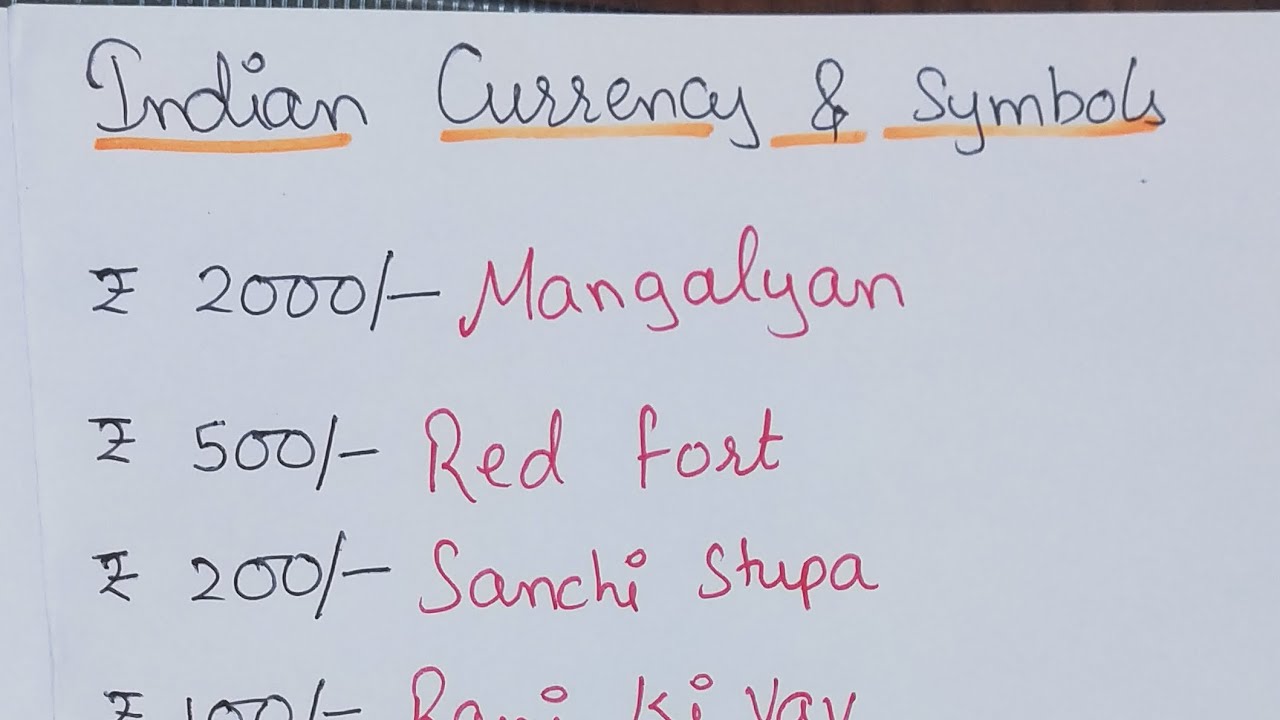 Indian Currency & Symbols
₹ 2000/- Mangalyan
₹ 500/- Red Fort
₹ 200/- Sanchi Stupa
₹ 100/- Rani Ki Vav